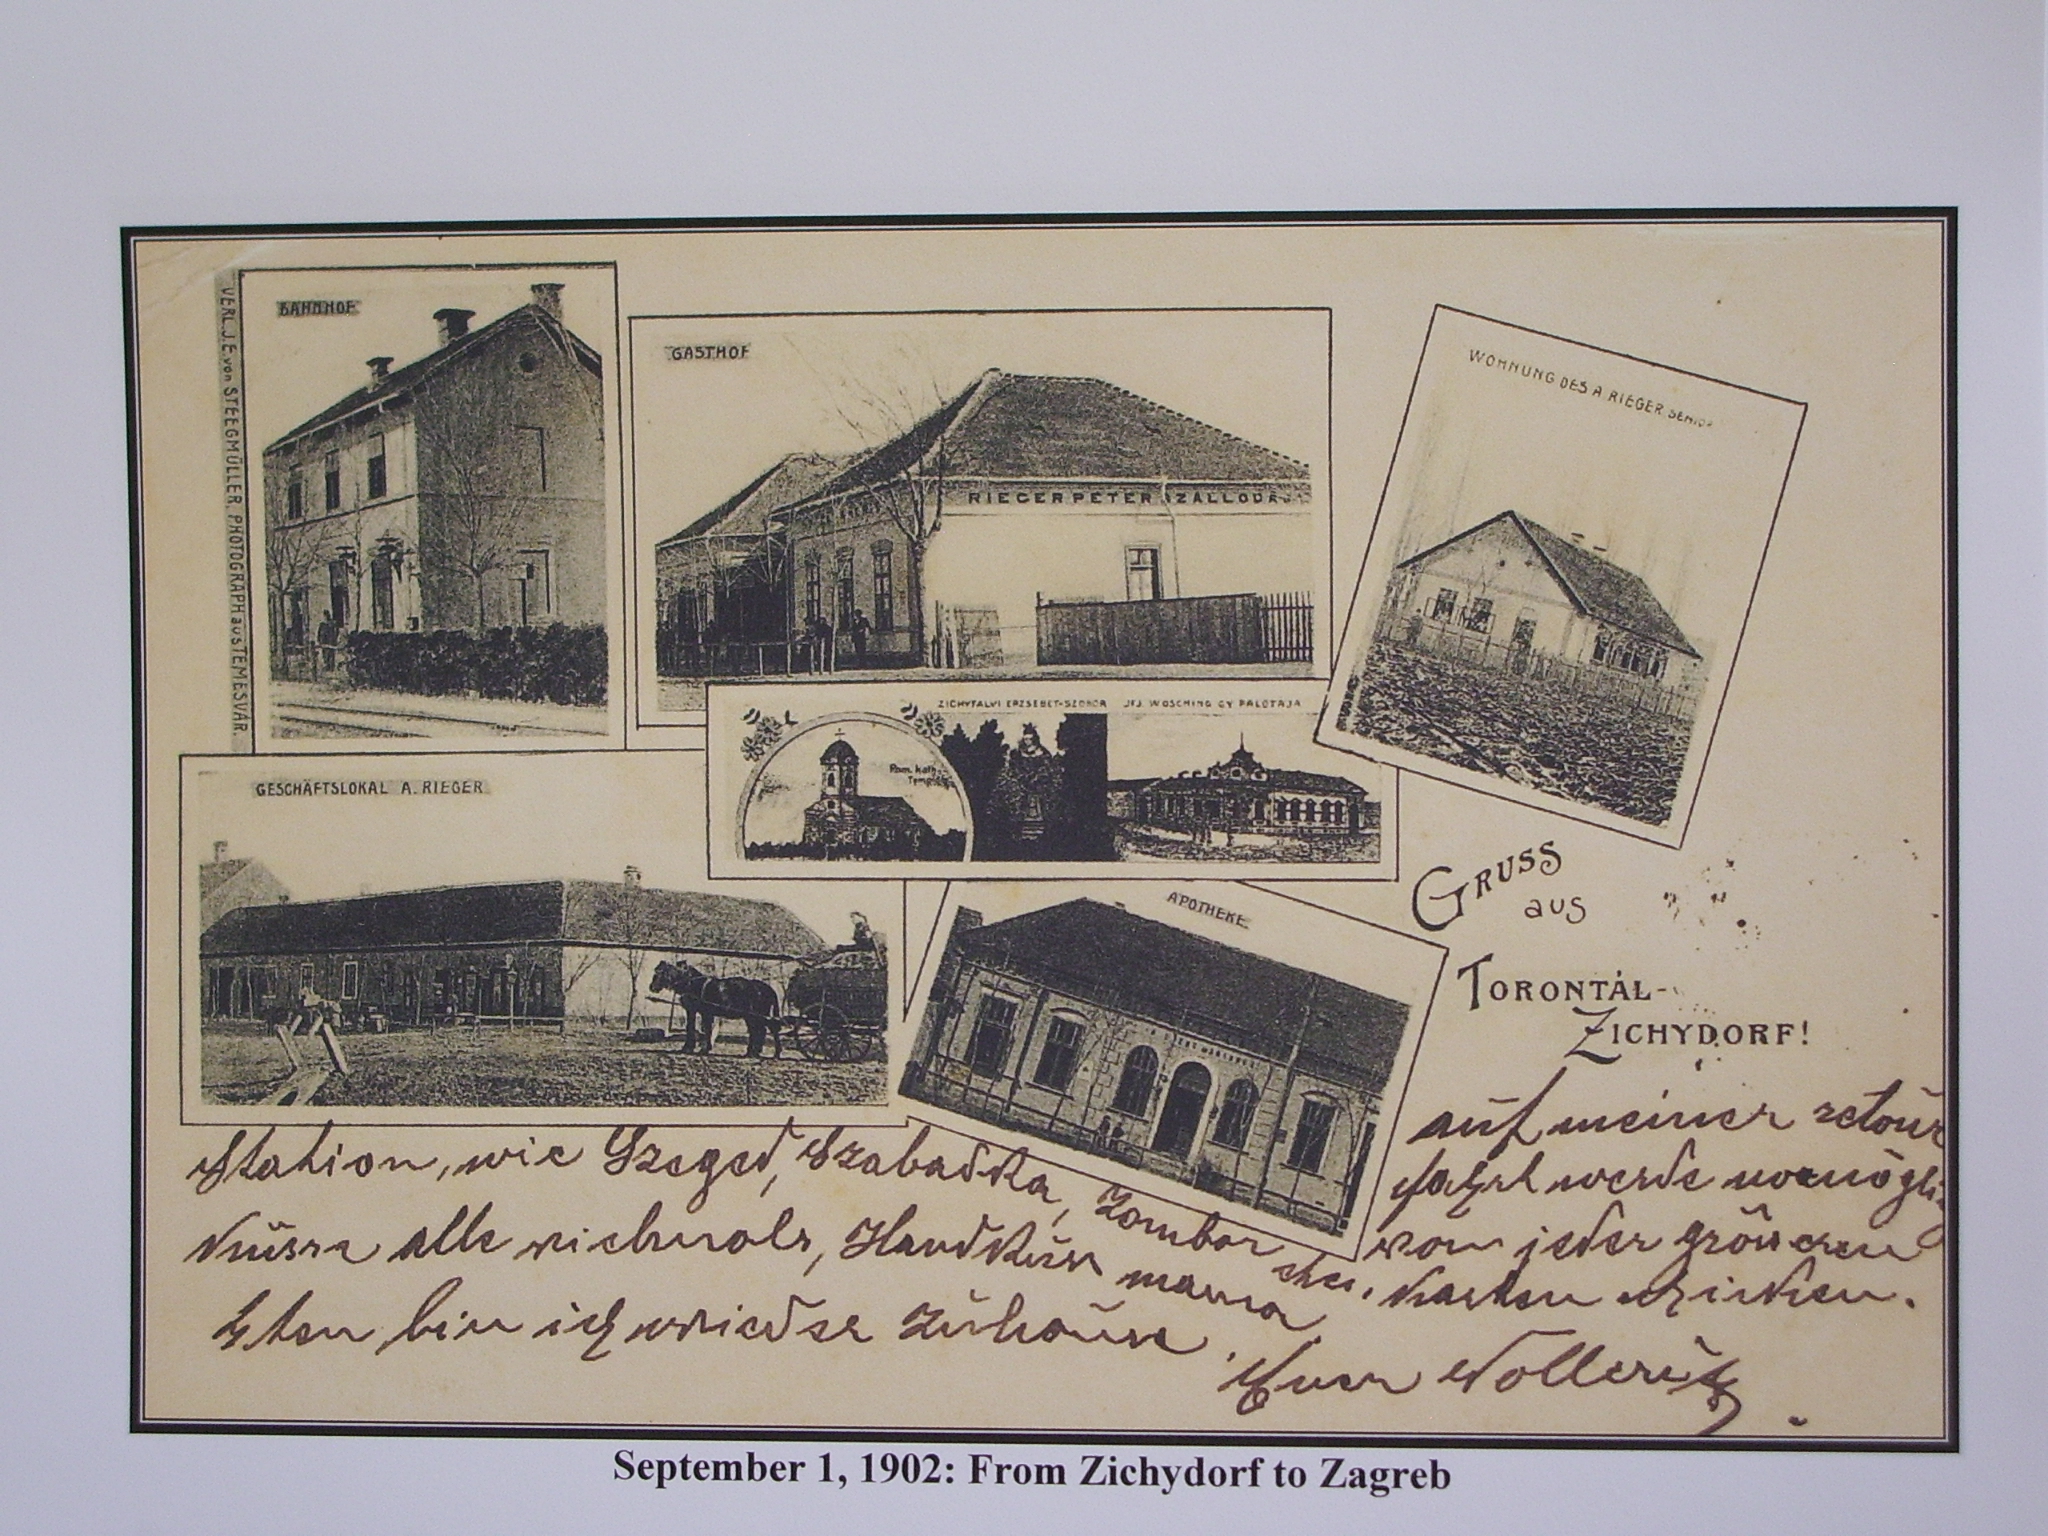 VERL.J.E.von STEEGMÜLLER, PHOTOGRAPH aus TEMESVÁR.
BAHNHOF
GASTHOF
RIEGER PETER SZÁLLODÁJA
WOHNUNG DES A. RIEGER SENIOR
ZICHYFALVI ERZSEBET-SZOBOR IFJ. WOSCHING GY PALOTAJA
Rom. kath.
Templom
GESCHÄFTSLOKAL A. RIEGER
APOTHEKE
GRUSS
aus
TORONTÁL-
ZICHYDORF!
auf meiner retour
fahrt werde womögli
von jeder grösseren
Station, wie Szeged, Szabadka, Zombor etc., Karten schicken.
Küsse alle vielmals, Handküsse mama
ten bin ich wieder zuhause.
Euer
September 1, 1902: From Zichydorf to Zagreb